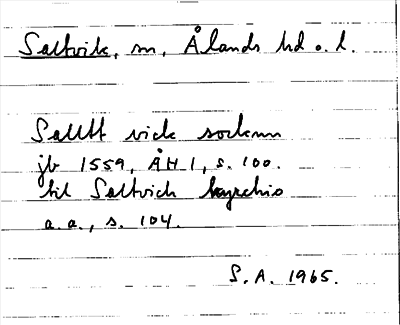 Saltvik, sn, Ålands hd o. l.
Salltt vick socknn
jb 1559, ÅH 1, s. 100.
til Saltvich kyrchio
a.a., s. 104.
S.A. 1965.